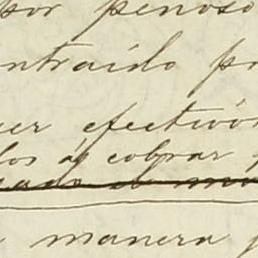 por penoso
ntraido p
er efectivo
los á cobrar
manera